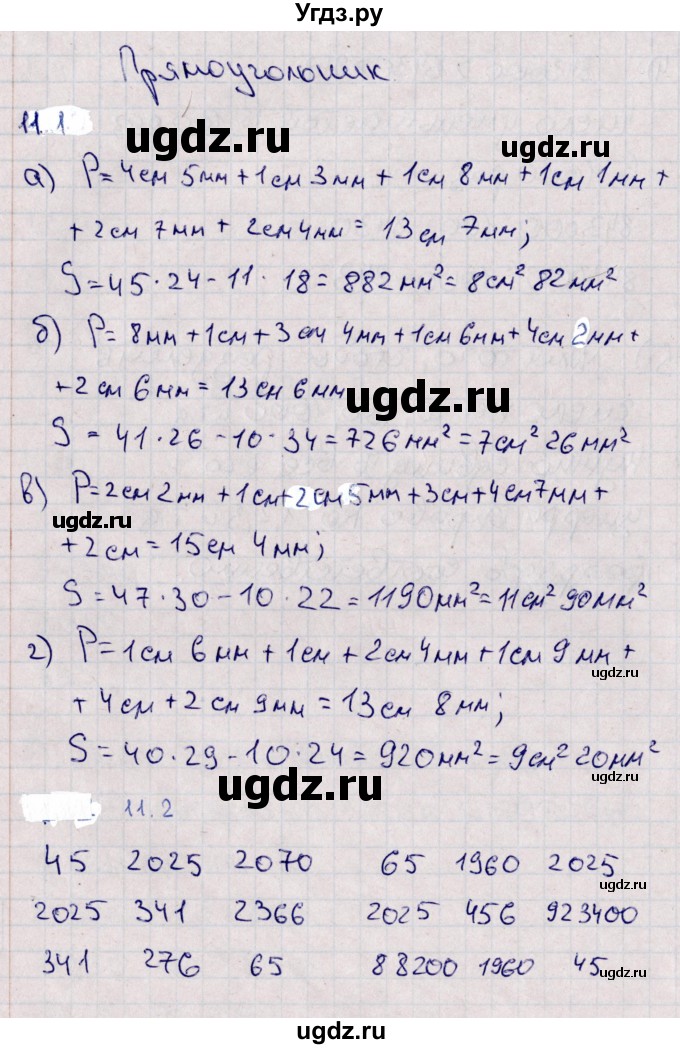 Угдз.ру
Прямоугольник
11.1
ugdz.ru
ugdz.ru
а) P=4см 5мм+1см 3мм+1см 8мм+1см 1мм+
+2см 7мм+2см4мм=13см 7мм;
S=45·24-11·18=882мм²=8см² 82мм²
б) P=8мм+1см+3см 4мм+1см 6мм+4см 2мм+
+2см 6мм=13см 6мм
ugdz.ru
S=41·26-10·34=726мм²=7см² 26мм²
в) P=2см 2мм+1см+2см5мм+3см+4см7мм+
ugdz.ru
+2см=15см 4мм;
S=47·30-10·22=1190мм²=11см² 90мм²
г) P=1см 6мм+1см+2см4мм+1см 9мм+
ugdz.ru
+4см+2см 9мм=13см 8мм;
S=40·29-10·24=920мм²=9см² 20мм²
ugdz.ru
11.2
45 2025 2070 65 1960 2025
ugdz.ru
2025 341 2366 2025 456 923400
341 276 65 88200 1960 45
ugdz.ru
ugdz.ru